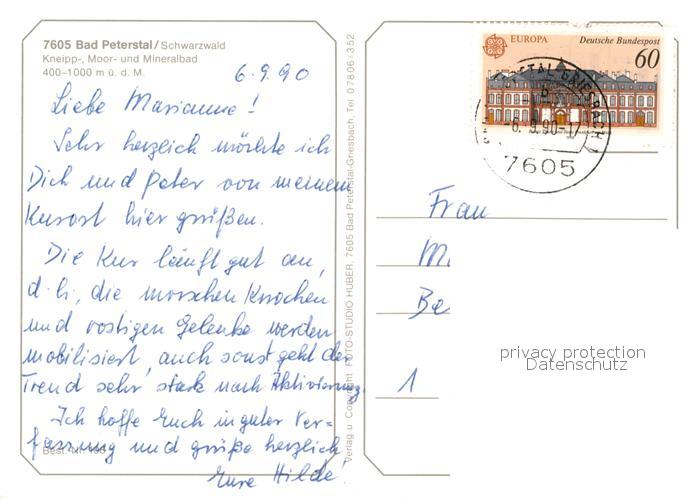 7605 Bad Peterstal/Schwarzwald
Kneipp-, Moor- und Mineralbad
400–1000 m ü. d. M.
6.9.90
Liebe Marianne!
Sehr herzlich möchte ich
Dich und Peter von meinem
Kurort hier grüßen.
Die Kur läuft gut an,
d. h., die morschen Knochen
und rostigen Gelenke werden
mobilisiert, auch sonst geht der
Trend sehr stark nach Aktivierung.
Ich hoffe Euch in guter Ver=
fassung und grüße herzlich
Eure Hilde!
Best. Nr.
Verlag u. Copyright FOTO-STUDIO HUBER, 7605 Bad Peterstal-Griesbach, Tel. 0 78 06-3 52
EUROPA
Deutsche Bundespost
60
-6.9.90-17
7605
Frau
M
Be
1
privacy protection
Datenschutz